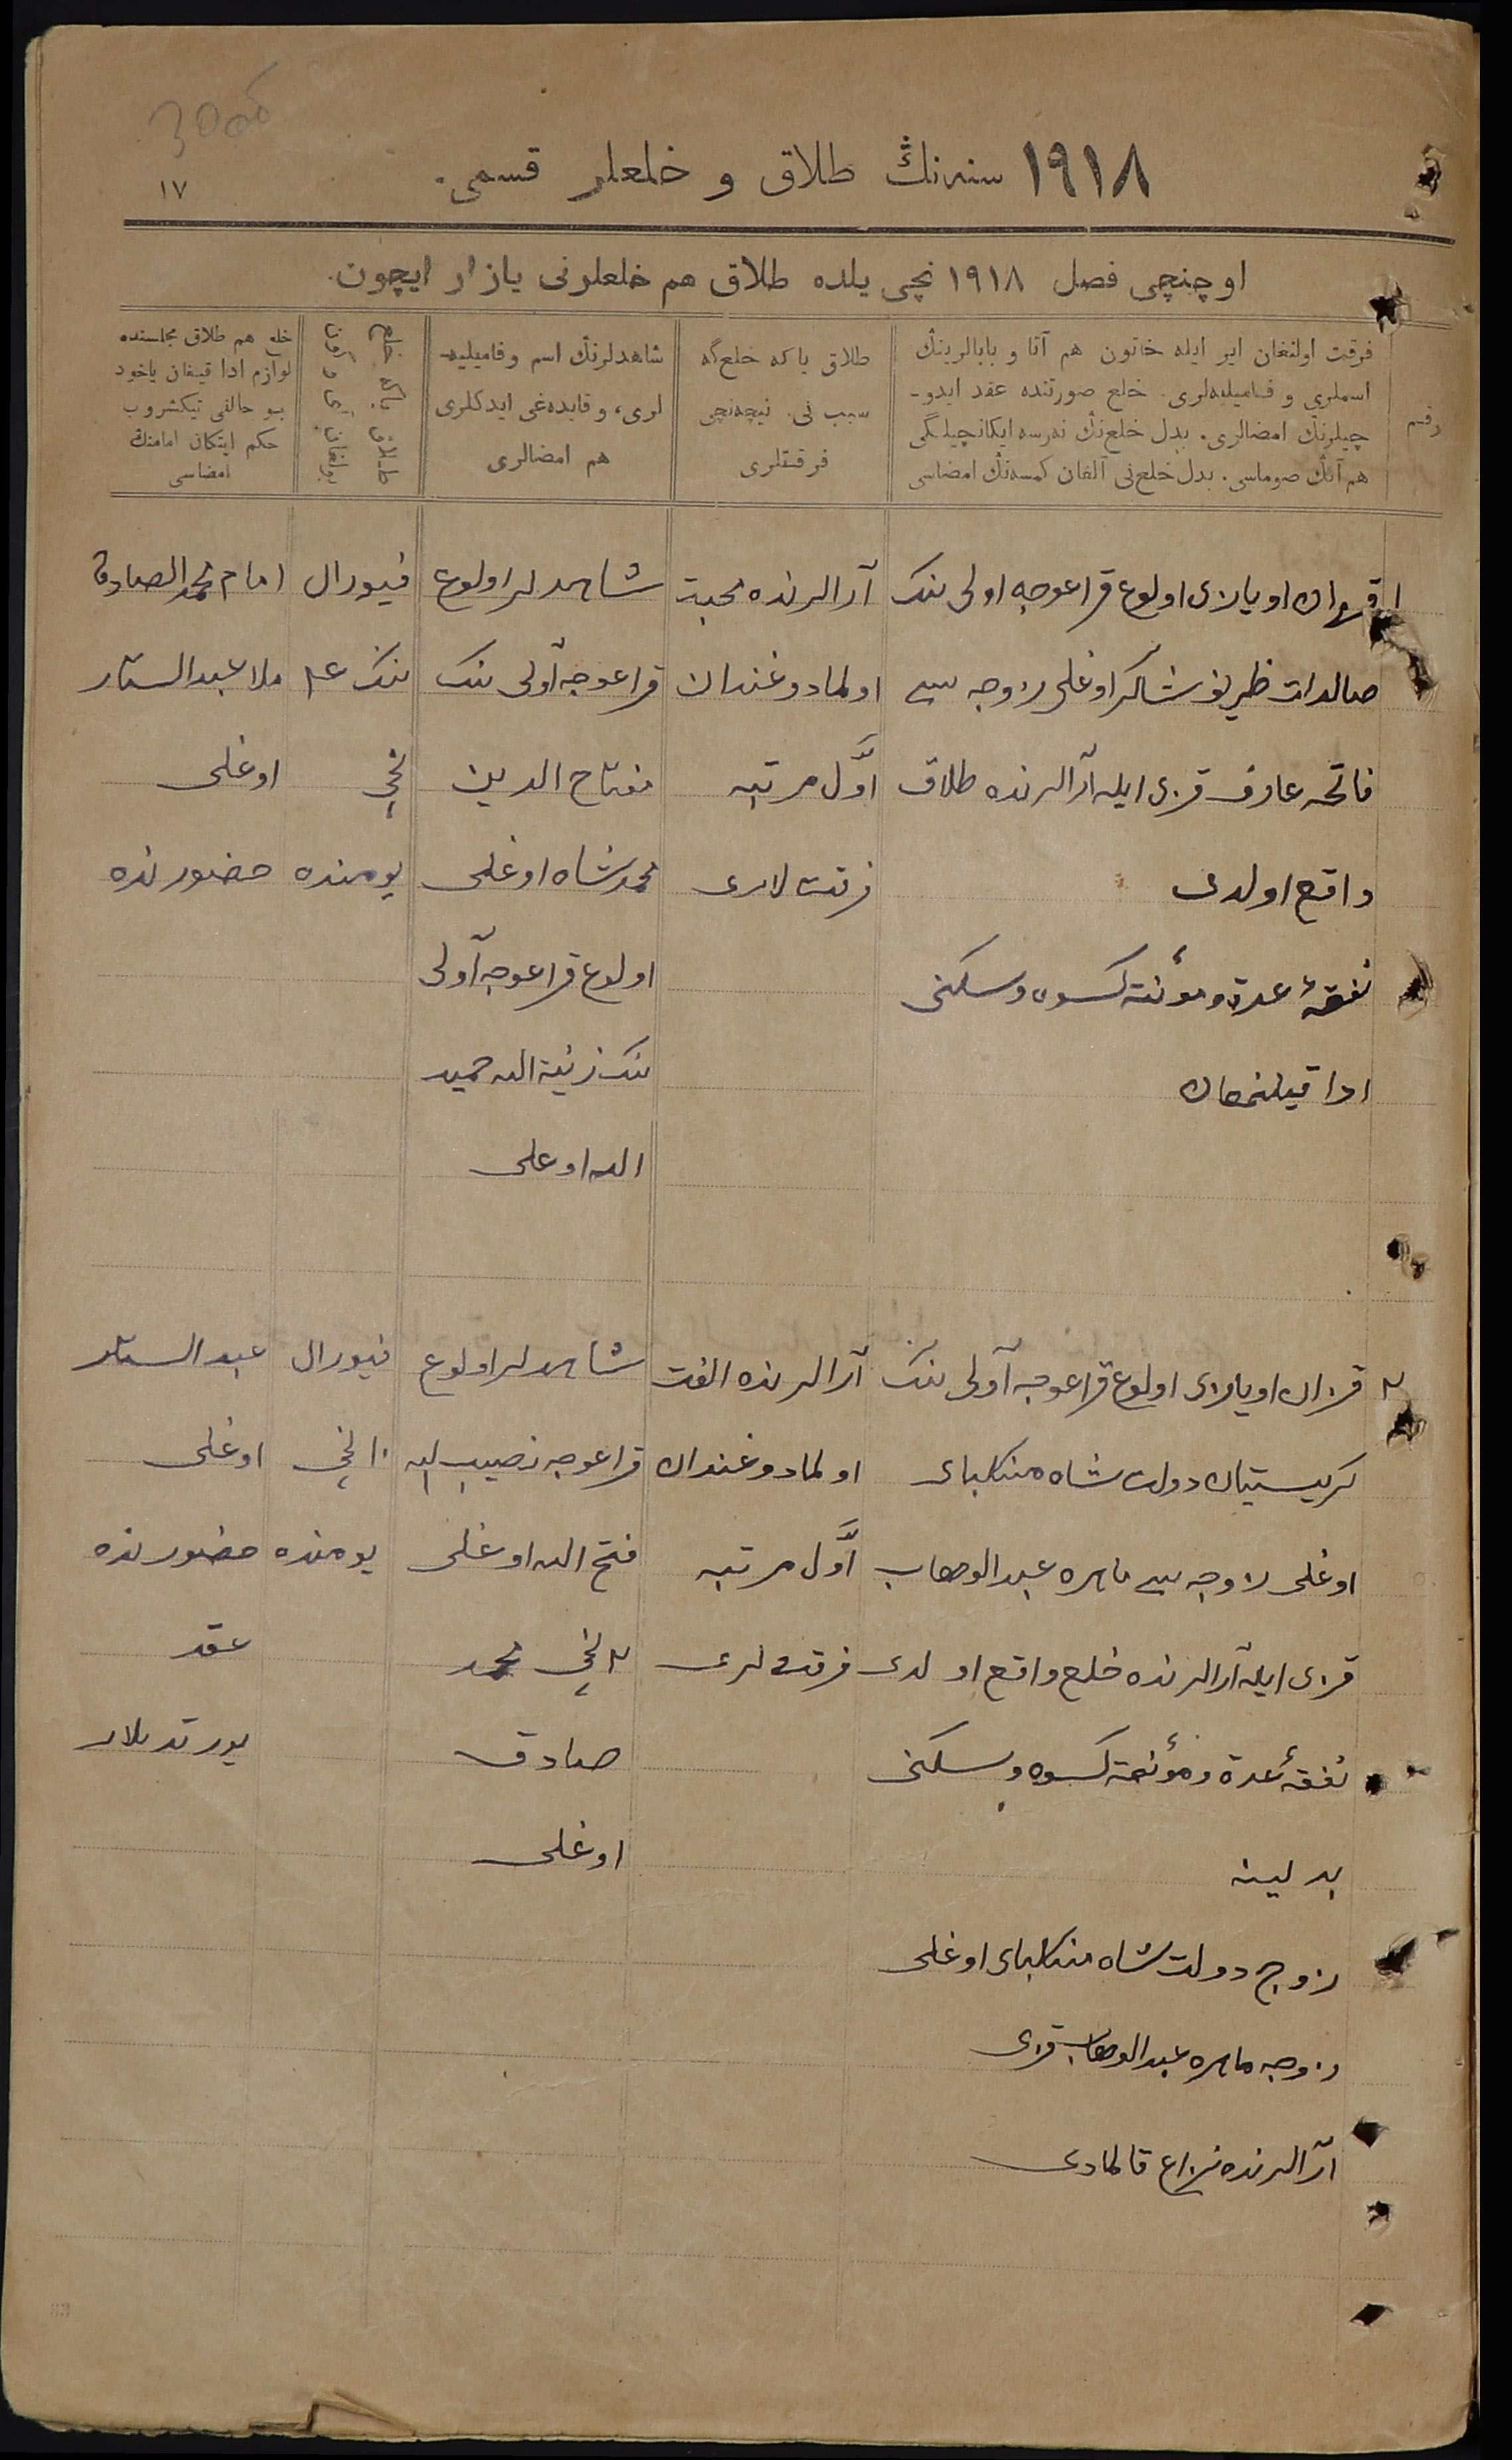 3000
١٩١٨ سنه‌نڭ طلاق و خلعلر قسمی.
١٧
اوچنچی فصل ١٩١٨ نچی یلده طلاق هم خلعلرنی یازار ایچون.
رقم
فرقت اولنغان ایر ایله خاتون هم آتا و بابالرینڭ
اسملری و فامیلیه‌لری. خلع صورتنده عقد ایدو-
چیلرنڭ امضالری. بدل خلع‌نڭ نه‌رسه ایکانچیلگی
هم آنڭ صوماسی. بدل خلع‌نی آلغان کمسه‌نڭ امضاسی
طلاق یا که خلع‌گه
سبب نی. نیچه‌نچی
فرقتلری
شاهدلرنڭ اسم و فامیلیه-
لری، و قایده‌غی ایدکلری
هم امضالری
طلاق یا که خلع
بولغان آی و کون
خلع هم طلاق مجلسنده
لوازم ادا قیلغان یاخود
بو حالنی تیکشروب
حکم ایتکان امامنڭ
امضاسی
١ قزان اویازی اولوغ قراعوجه اولی ننک
صالدات ظریف شاکر اوغلی زوجه سی
فاتحه عارف قزی ایله آرالرنده طلاق
واقع اولدی
نفقهٔ عدة و مؤنة کسوه و سکنی
ادا قیلنمغان
آرالرنده محبت
اولمادوغندان
اوّل مرتبه
فرقت لاری
شاهدلر اولوغ
قراعوجه آولی ننک
مفتاح الدین
محمدشاه اوغلی
اولوغ قراعوجه آولی
ننک زینة الله حمید
الله اوغلی
فیورال
ننک ٤
نچی
یومنده
امام محمد الصادق
ملا عبدالستار
اوغلی
حضورنده
٢ قزان اویازی اولوغ قراعوجه آولی ننک
کریستیان دولت شاه منکلبای
اوغلی زوجه سی ماهره عبدالوهاب
قزی ایله آرالرنده خلع واقع اولدی
نفقهٔ عدة و مؤنة کسوه و سکنی
بدلینه
زوج دولت شاه منکلبای اوغلی
زوجه ماهره عبدالوهاب قزی
آرالرنده نزاع قالمادی
آرالرنده الفت
اولمادوغندان
اوّل مرتبه
فرقت لری
شاهدلر اولوغ
قراعوجه نصیب الله
فتح الله اوغلی
٢ نچی محمد
صادق
اوغلی
فیورال
١٠ نچی
یومنده
عبدالستار
اوغلی
حضورنده
عقد
یورتدیلار